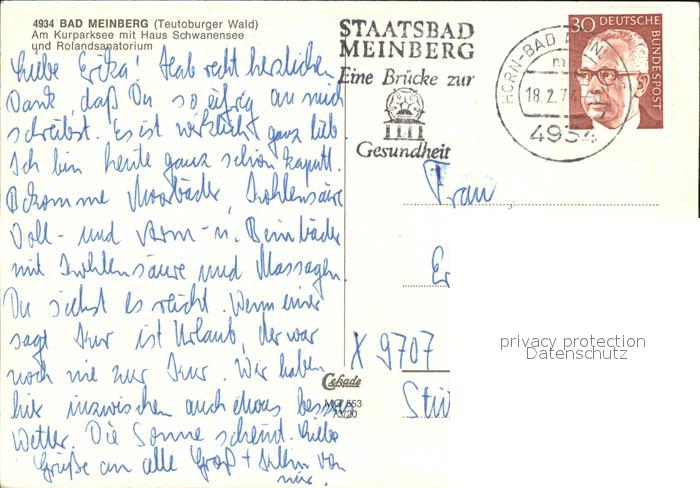 4934 BAD MEINBERG (Teutoburger Wald)
Am Kurparksee mit Haus Schwanensee
und Rolandsanatorium
Liebe Erika! Hab recht herzlichen
Dank, daß Du so eifrig an mich
schreibst. Es ist wirklich ganz lieb
Ich bin heute ganz schön kaputt.
Bekomme Moorbäder, Kohlensäure
Voll- und Arm- u. Beinbäder
mit Kohlensäure und Massagen.
Du siehst es reicht. Wenn einer
sagt Kur ist Urlaub, der war
noch nie zur Kur. Wir haben
hier inzwischen auch etwas besser
Wetter. Die Sonne scheint. Liebe
Grüße an alle Groß + Klein von
mir.
Cekade
553
73/20
STAATSBAD
MEINBERG
Eine Brücke zur
Gesundheit
HORN-BAD
18.2.74
4934
30 DEUTSCHE
BUNDESPOST
Frau
Er
X 9707
privacy protection
Datenschutz